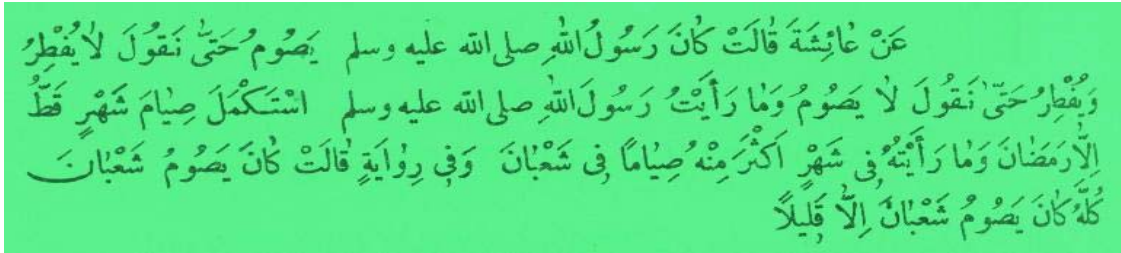 عَنْ عَائِشَةَ قَالَتْ كَانَ رَسُولُ اللّٰهِ صلى الله عليه وسلم يَصُومُ حَتّٰى نَقُولَ لَا يُفْطِرُ
وَيُفْطِرُ حَتّٰى نَقُولَ لَا يَصُومُ وَمَا رَأَيْتُ رَسُولَ اللّٰهِ صلى الله عليه وسلم اسْتَكْمَلَ صِيَامَ شَهْرٍ قَطُّ
اِلَّا رَمَضَانَ وَمَا رَأَيْتُهُ فِى شَهْرٍ اَكْثَرَ مِنْهُ صِيَامًا فِى شَعْبَانَ وَفِى رِوَايَةٍ قَالَتْ كَانَ يَصُومُ شَعْبَانَ
كُلَّهُ كَانَ يَصُومُ شَعْبَانَ اِلَّا قَلِيلًا